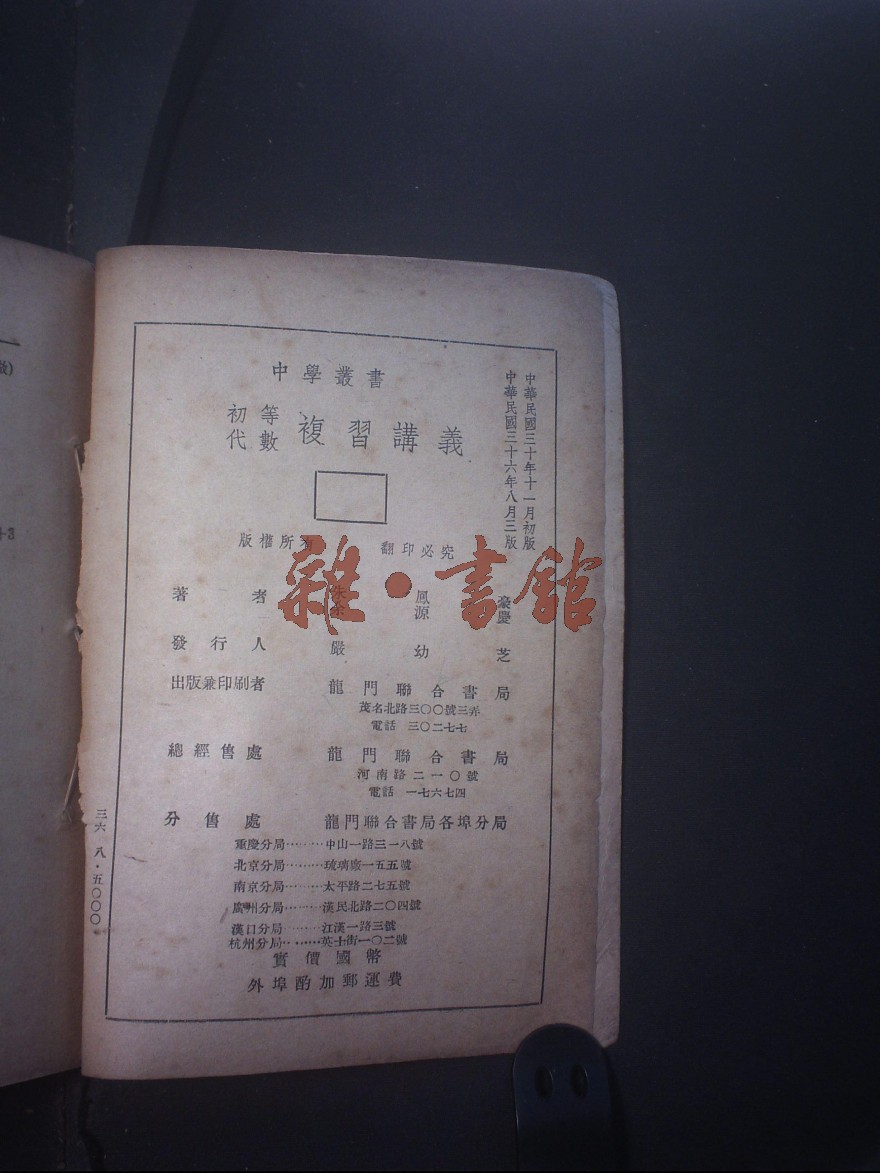 中華民國三十年十一月初版
中華民國三十六年八月三版
中學叢書
初等代數複習講義
版權所有 翻印必究
著者 朱鳳豪
余源慶
發行人 嚴幼芝
出版兼印刷者 龍門聯合書局
茂名北路三〇〇號三弄
電話 三〇二七七
總經售處 龍門聯合書局
河南路二一〇號
電話 一七六七四
分售處 龍門聯合書局各埠分局
重慶分局⋯⋯⋯中山一路三一八號
北京分局⋯⋯⋯琉璃廠一五五號
南京分局⋯⋯⋯太平路二七五號
廣州分局⋯⋯⋯漢民北路二〇四號
漢口分局⋯⋯⋯江漢一路三號
杭州分局⋯⋯⋯英士街一〇二號
實價國幣
外埠酌加郵運費
三六 八·五〇〇〇
雜·書館